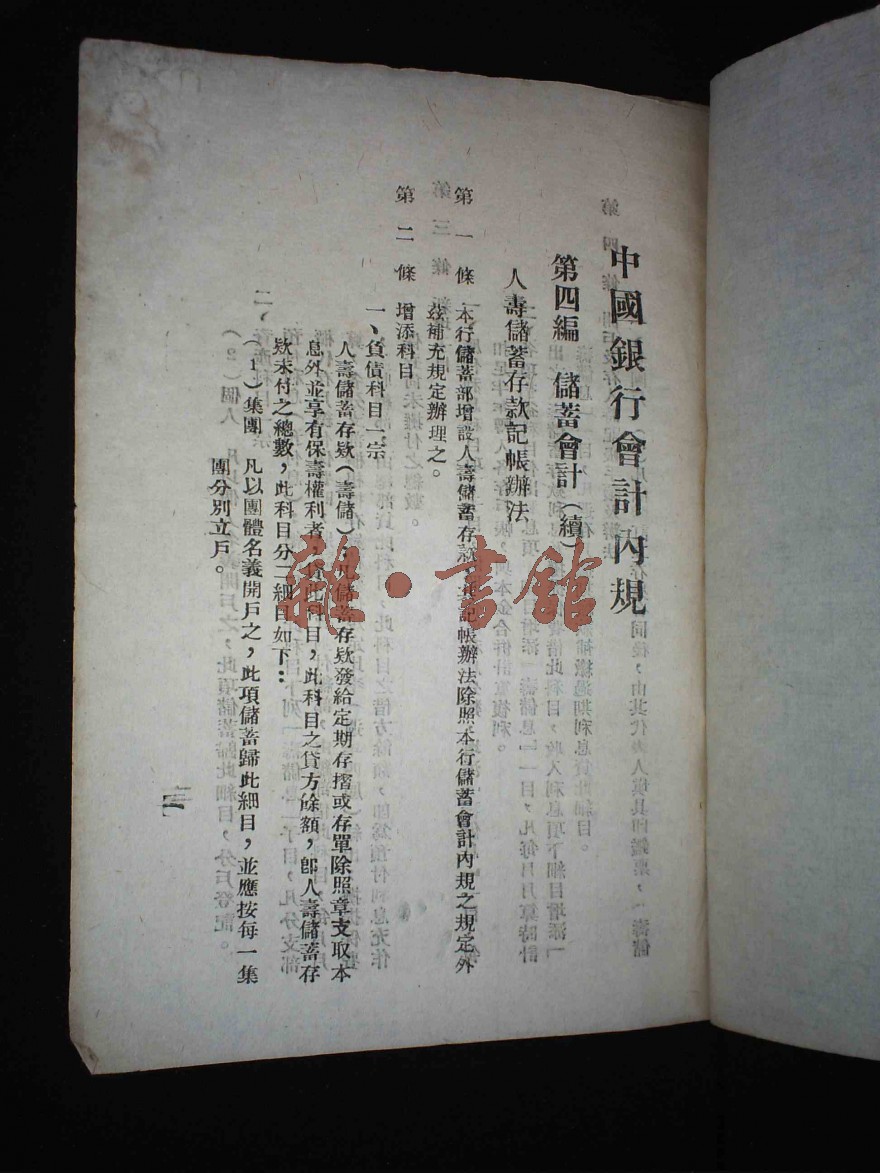 中國銀行會計內規
第四編　儲蓄會計（續）
人壽儲蓄存款記帳辦法
第一條　本行儲蓄部增設人壽儲蓄存款，其記帳辦法除照本行儲蓄會計內規之規定外
茲補充規定辦理之。
第二條　增添科目
一、負債科目一宗
人壽儲蓄存欵（壽儲）：凡儲蓄存欵發給定期存摺或存單除照章支取本
息外並享有保壽權利者，貸此科目，此科目之貸方餘額，卽人壽儲蓄存
欵未付之總數，此科目分二細目如下：
（1）集團　凡以團體名義開戶之，此項儲蓄歸此細目，並應按每一集
團分別立戶。
雜·書館